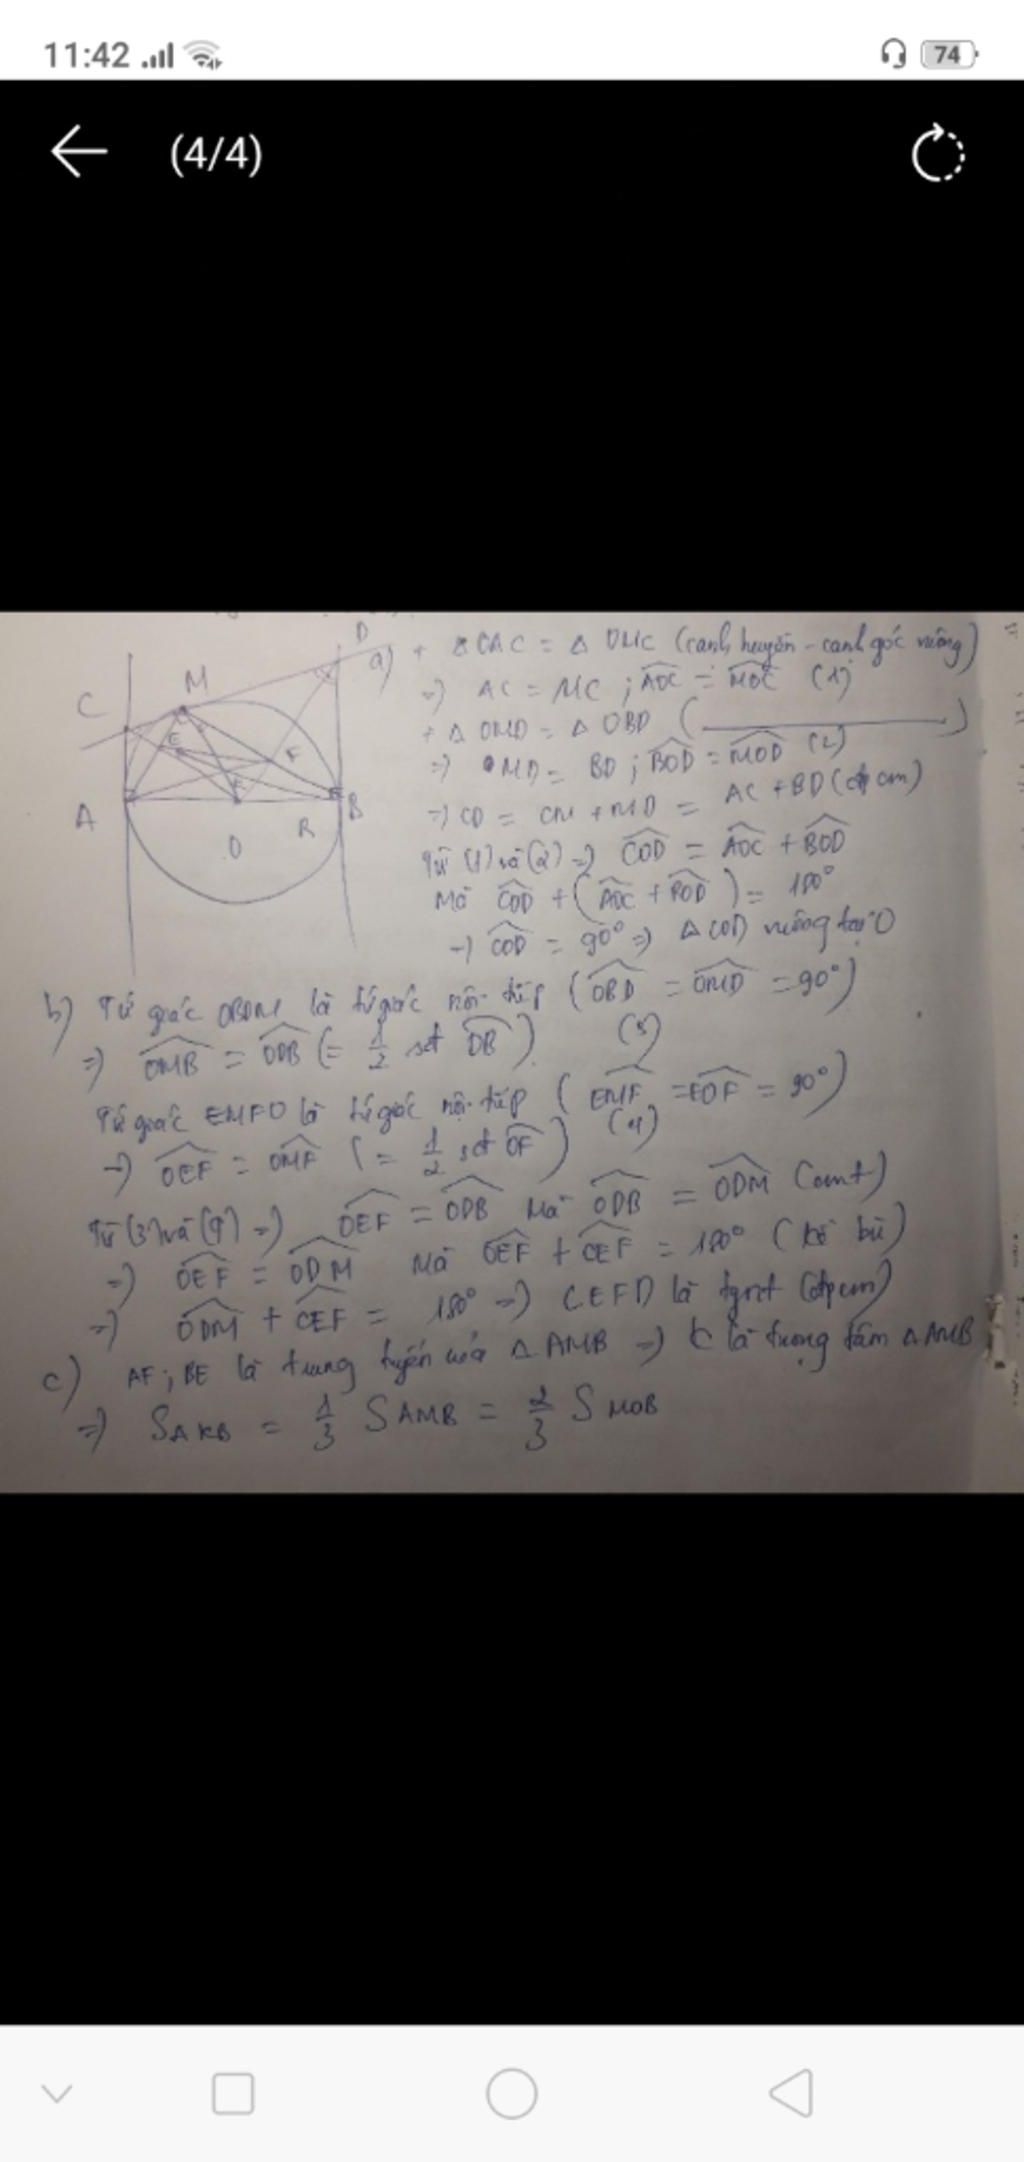 11:42
74
(4/4)
D
C
M
E
F
A
B
O
R
a) + ΔOAC = Δ OMC (cạnh huyền - cạnh góc vuông)
=) AC = MC ; AOC = MOC (1)
+ Δ OMD = Δ OBD ( )
=) MD = BD ; BOD = MOD (2)
=) CD = CM + MD = AC + BD (đpcm)
Từ (1) và (2) =) COD = AOC + BOD
Mà COD + (AOC + BOD) = 180°
=) COD = 90° =) Δ COD vuông tại O
b) Tứ giác OBDM là tứ giác nội tiếp (OBD = OMD = 90°)
=) OMB = ODB (= 1/2 sđ OB) (3)
Tứ giác EMFO là tứ giác nội tiếp (EMF = EOF = 90°)
=) OEF = OMF (= 1/2 sđ OF) (4)
Từ (3) và (4) =) OEF = ODB Mà ODB = ODM (cmt)
=) OEF = ODM Mà OEF + CEF = 180° (kề bù)
=) ODM + CEF = 180° =) CEFD là tgnt (đpcm)
c) AF ; BE là trung tuyến của Δ AMB =) K là trọng tâm Δ AMB
=) SAKB = 1/3 SAMB = 2/3 SMOB